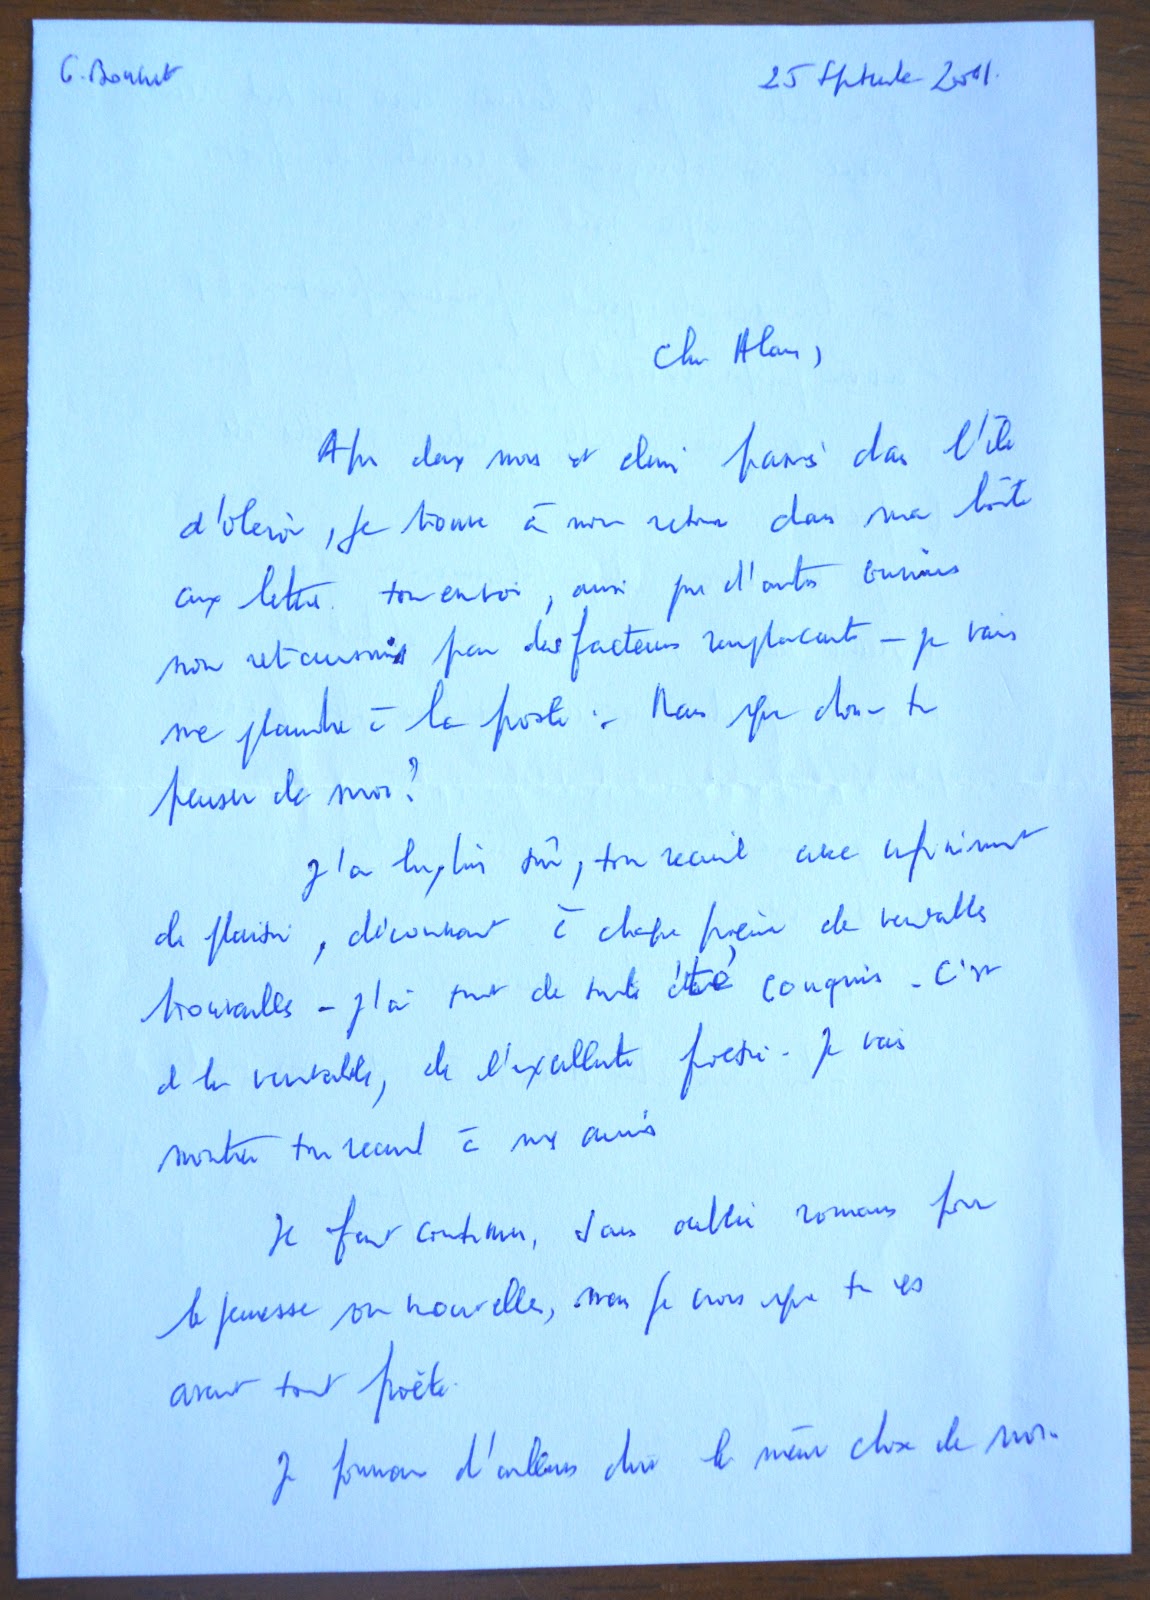 25 Septembre 2001.
Cher Alain,
Après deux mois et demi passés dans l'île
d'Oléron, je trouve à mon retour dans ma boîte
aux lettres ton envoi, ainsi que d'autres courriers
non retournés par des facteurs remplaçants – je vais
me plaindre à la poste. Mais que dois-tu
penser de moi?
J'ai lu, bien sûr, ton recueil avec infiniment
de plaisir, découvrant à chaque poème de véritables
trouvailles – j'ai tout de suite été conquis. C'est
de la véritable, de l'excellente poésie. Je vais
montrer ton recueil à mes amis
Il faut continuer, sans oublier romans pour
la jeunesse ou nouvelles, mais je crois que tu es
avant tout poète.
Je pourrais d'ailleurs dire la même chose de moi.